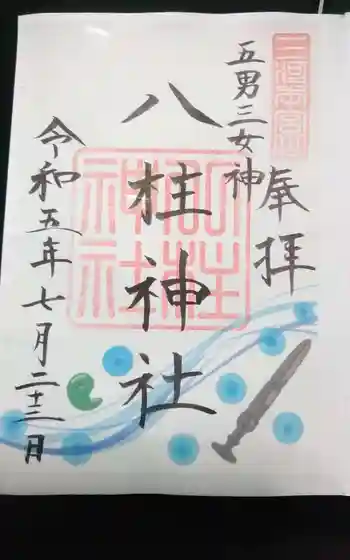 奉拝
五男三女神
八柱神社
令和五年七月二十二日
八柱神社